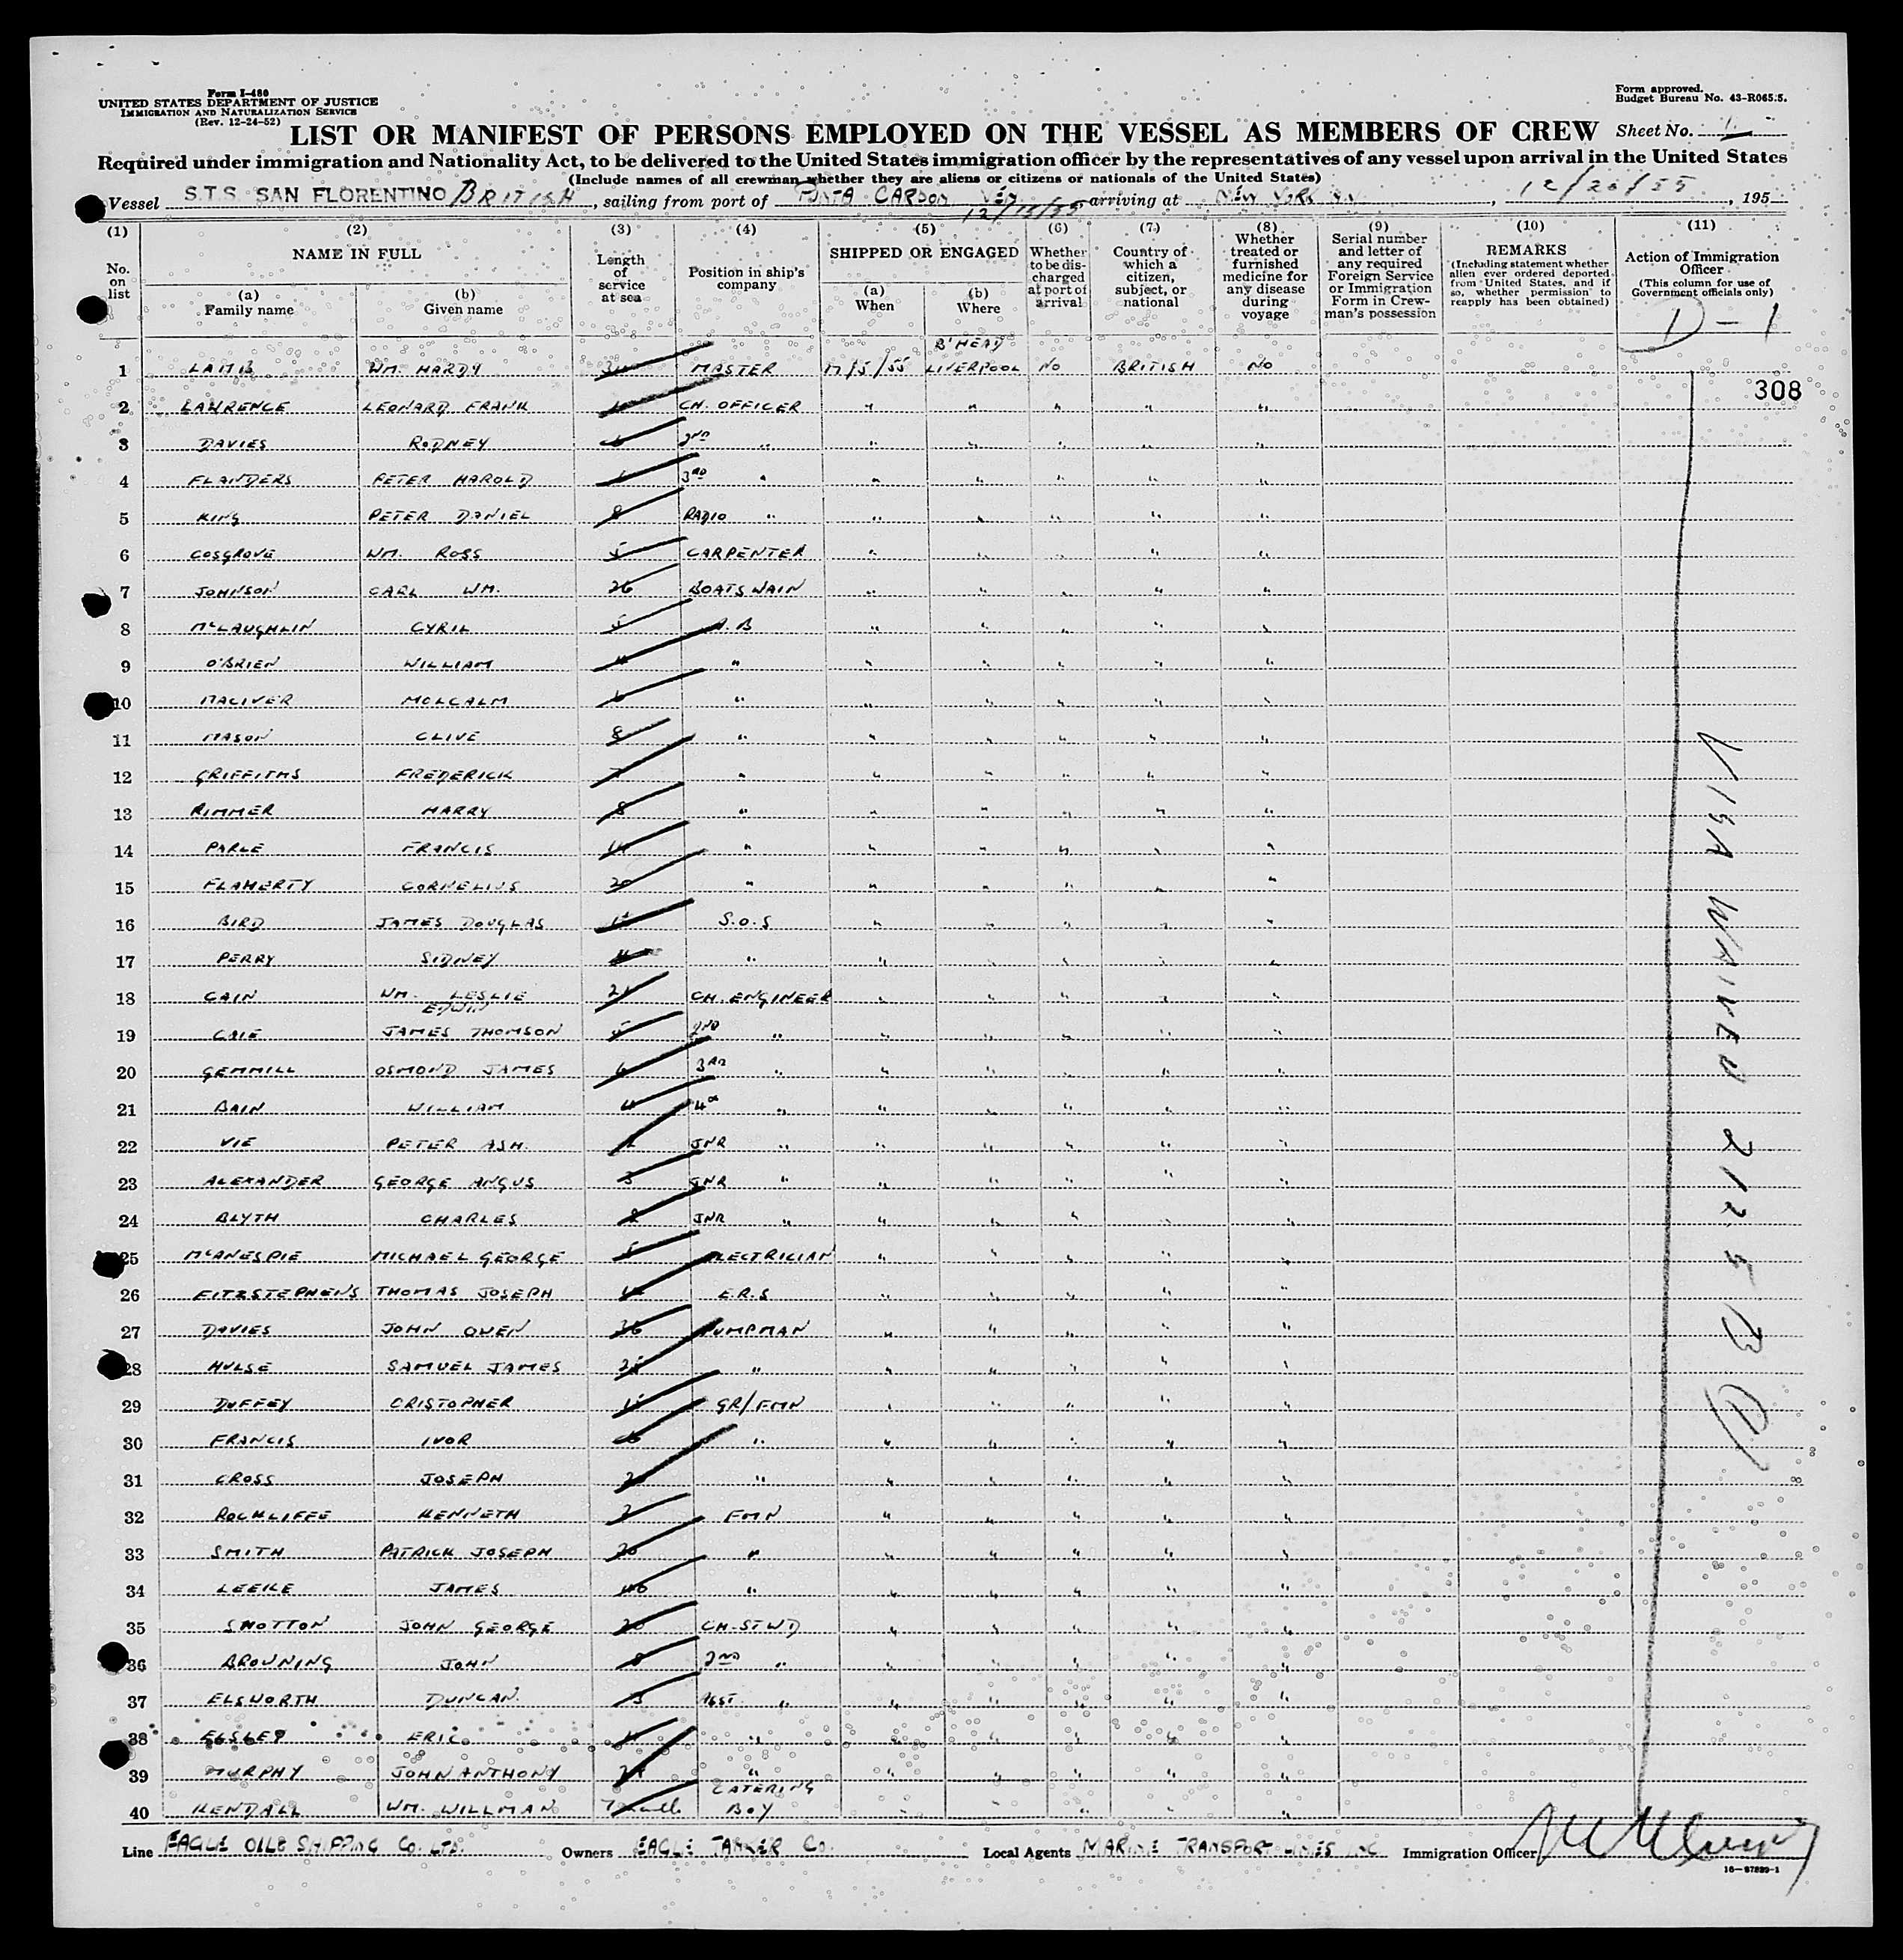 Form I-480
UNITED STATES DEPARTMENT OF JUSTICE
IMMIGRATION AND NATURALIZATION SERVICE
(Rev. 12-24-52)
Form approved.
Budget Bureau No. 43-R065.5.
LIST OR MANIFEST OF PERSONS EMPLOYED ON THE VESSEL AS MEMBERS OF CREW Sheet No. 1
Required under immigration and Nationality Act, to be delivered to the United States immigration officer by the representatives of any vessel upon arrival in the United States
(Include names of all crewman whether they are aliens or citizens or nationals of the United States)
Vessel S.T.S. SAN FLORENTINO BRITISH, sailing from port of PUNTA CARDON VEN 12/15/55 arriving at NEW YORK NY, 12/20/55, 195
(1) No. on list
(2) NAME IN FULL
(a) Family name
(b) Given name
(3) Length of service at sea
(4) Position in ship's company
(5) SHIPPED OR ENGAGED
(a) When
(b) Where
(6) Whether to be discharged at port of arrival
(7) Country of which a citizen, subject, or national
(8) Whether treated or furnished medicine for any disease during voyage
(9) Serial number and letter of any required Foreign Service or Immigration Form in Crewman's possession
(10) REMARKS (Including statement whether alien ever ordered deported from United States, and if so, whether permission to reapply has been obtained)
(11) Action of Immigration Officer (This column for use of Government officials only)
D-1
308
1 LAMB WM. HARDY MASTER 17/5/55 B'HEAD LIVERPOOL NO BRITISH NO
2 LAWRENCE LEONARD FRANK CH. OFFICER " " " " "
3 DAVIES RODNEY 6 2ND " " " " " "
4 FLANDERS PETER HAROLD 3RD " " " " " "
5 KING PETER DANIEL 8 RADIO " " " " " "
6 COSGROVE WM. ROSS 5 CARPENTER " " " " "
7 JOHNSON CARL WM. 26 BOATSWAIN " " " " "
8 McLAUGHLIN CYRIL 5 A.B " " " " "
9 O'BRIEN WILLIAM " " " " " "
10 MACIVER MOLCALM 6 " " " " " "
11 MASON CLIVE 8 " " " " " "
12 GRIFFITHS FREDERICK 7 " " " " " "
13 RIMMER HARRY 8 " " " " " "
14 PARLE FRANCIS " " " " " "
15 FLAHERTY CORNELIUS 20 " " " " " "
16 BIRD JAMES DOUGLAS S.O.S " " " " "
17 PERRY SIDNEY " " " " " "
18 CAIN WM. LESLIE EDWIN CH. ENGINEER " " " " "
19 CAIE JAMES THOMSON 5 2ND " " " " " "
20 GEMMILL OSMOND JAMES 6 3RD " " " " " "
21 BAIN WILLIAM 4 4th " " " " " "
22 VIE PETER ASH. JNR " " " " " "
23 ALEXANDER GEORGE ANGUS 3 JNR " " " " " "
24 BLYTH CHARLES 2 JNR " " " " " "
25 McANESPIE MICHAEL GEORGE ELECTRICIAN " " " " "
26 FITZSTEPHENS THOMAS JOSEPH E.R.S " " " " "
27 DAVIES JOHN OWEN 36 PUMPMAN " " " " "
28 HULSE SAMUEL JAMES " " " " " "
29 DUFFEY CRISTOPHER GR/FMN " " " " "
30 FRANCIS IVOR " " " " " "
31 CROSS JOSEPH " " " " " "
32 ROCKLIFFE KENNETH 2 FMN " " " " "
33 SMITH PATRICK JOSEPH 20 " " " " " "
34 LEEILE JAMES " " " " " "
35 SHOTTON JOHN GEORGE 20 CH. STWD " " " " "
36 BROWNING JOHN 8 2ND " " " " " "
37 ELSWORTH DUNCAN. 3 ASST " " " " " "
38 ERIC " " " " " "
39 MURPHY JOHN ANTHONY " " " " " "
40 KENDALL WM. WILLMAN CATERING BOY " " " " "
VISA WAIVED 212.5 B
Line EAGLE OIL & SHIPPING CO. LTD. Owners EAGLE TANKER CO. Local Agents MARINE TRANSPORT LINES INC Immigration Officer
16-67889-1